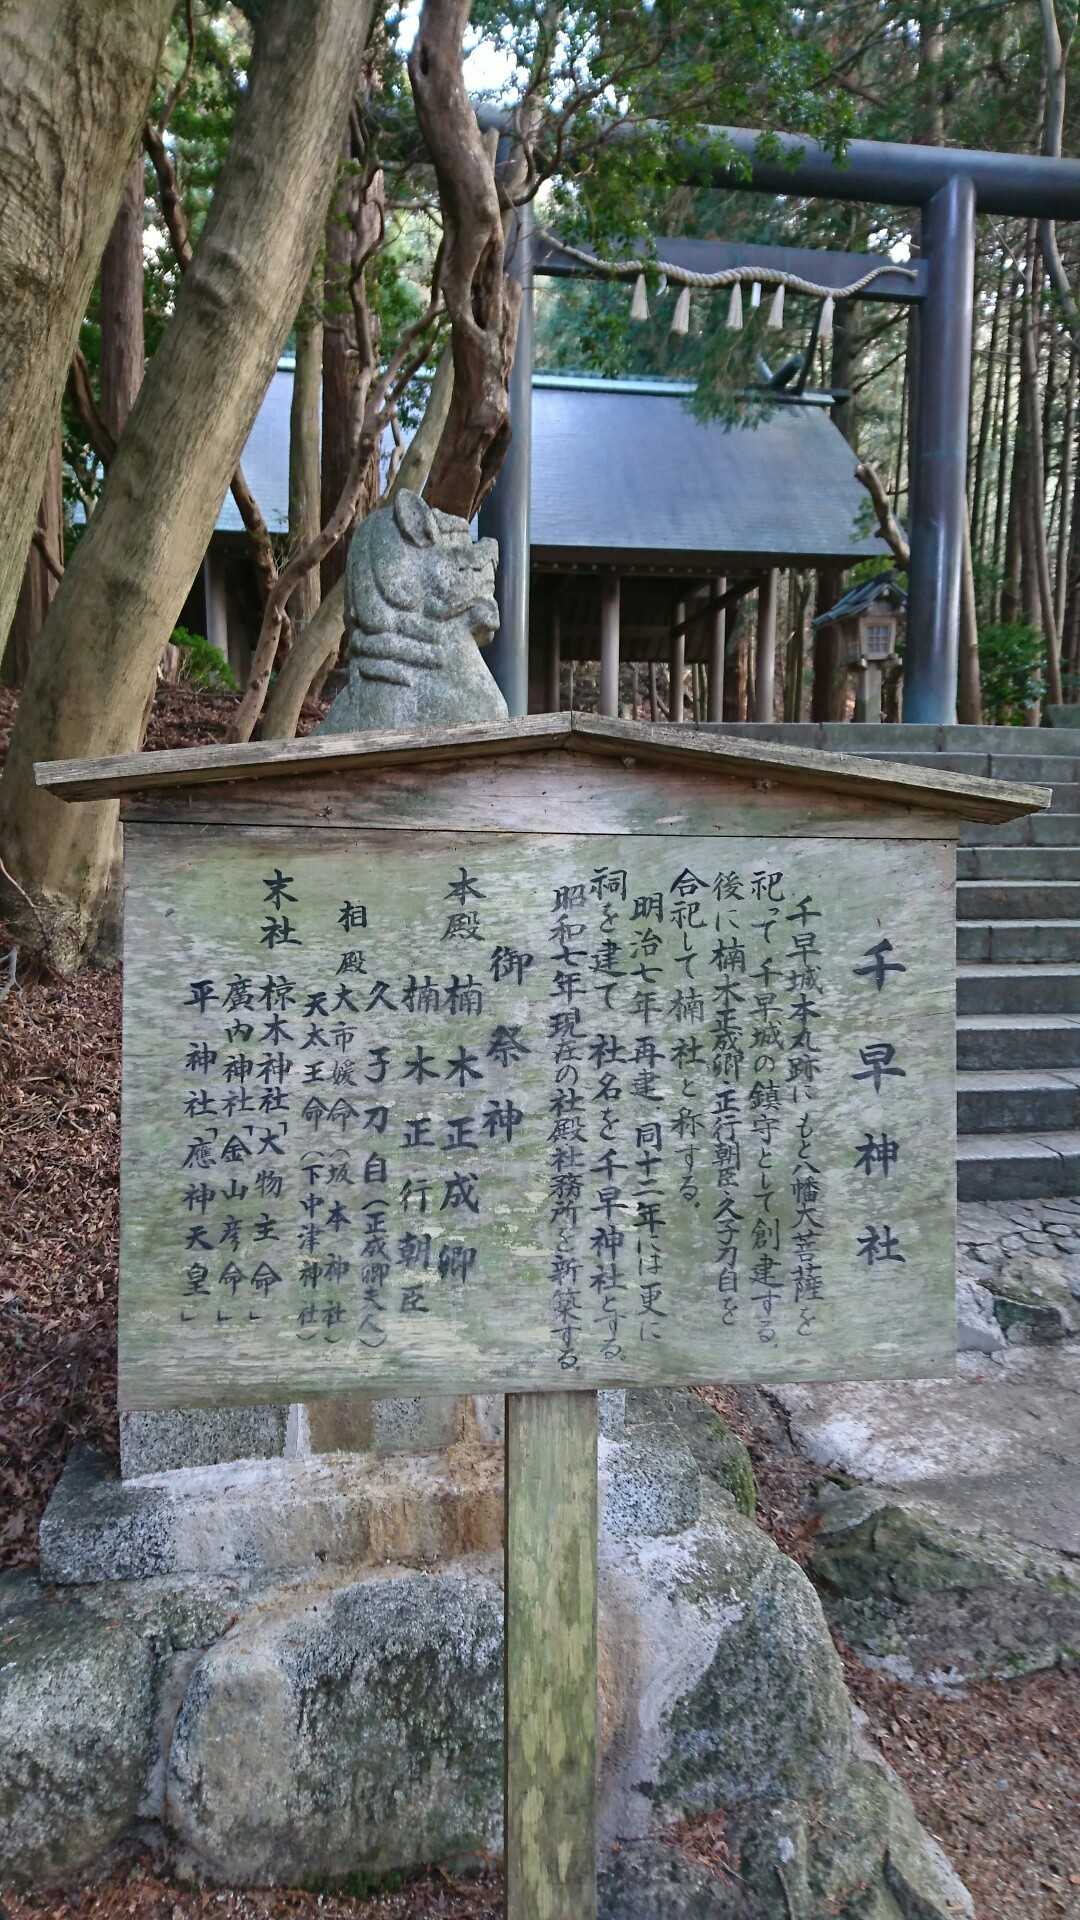 千早神社
千早城本丸跡に もと八幡大菩薩を
祀って千早城の鎮守として創建する。
後に楠木正成卿・正行朝臣・久子刀自を
合祀して楠社と称する。
明治七年再建、同十二年には更に
祠を建て 社名を千早神社とする。
昭和七年現在の社殿社務所を新築する。
御祭神
本殿 楠木正成卿
楠木正行朝臣
久子刀自(正成卿夫人)
相殿 大市媛命(坂本神社)
天太王命(下中津神社)
末社 椋木神社「大物主命」
廣内神社「金山彦命」
平神社「應神天皇」